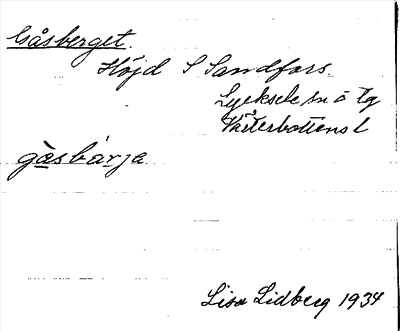 Gåsberget.
Höjd S Sandfors.
Lycksele sn o tg
Västerbottens l
gåsbárja
Lisa Lidberg 1934